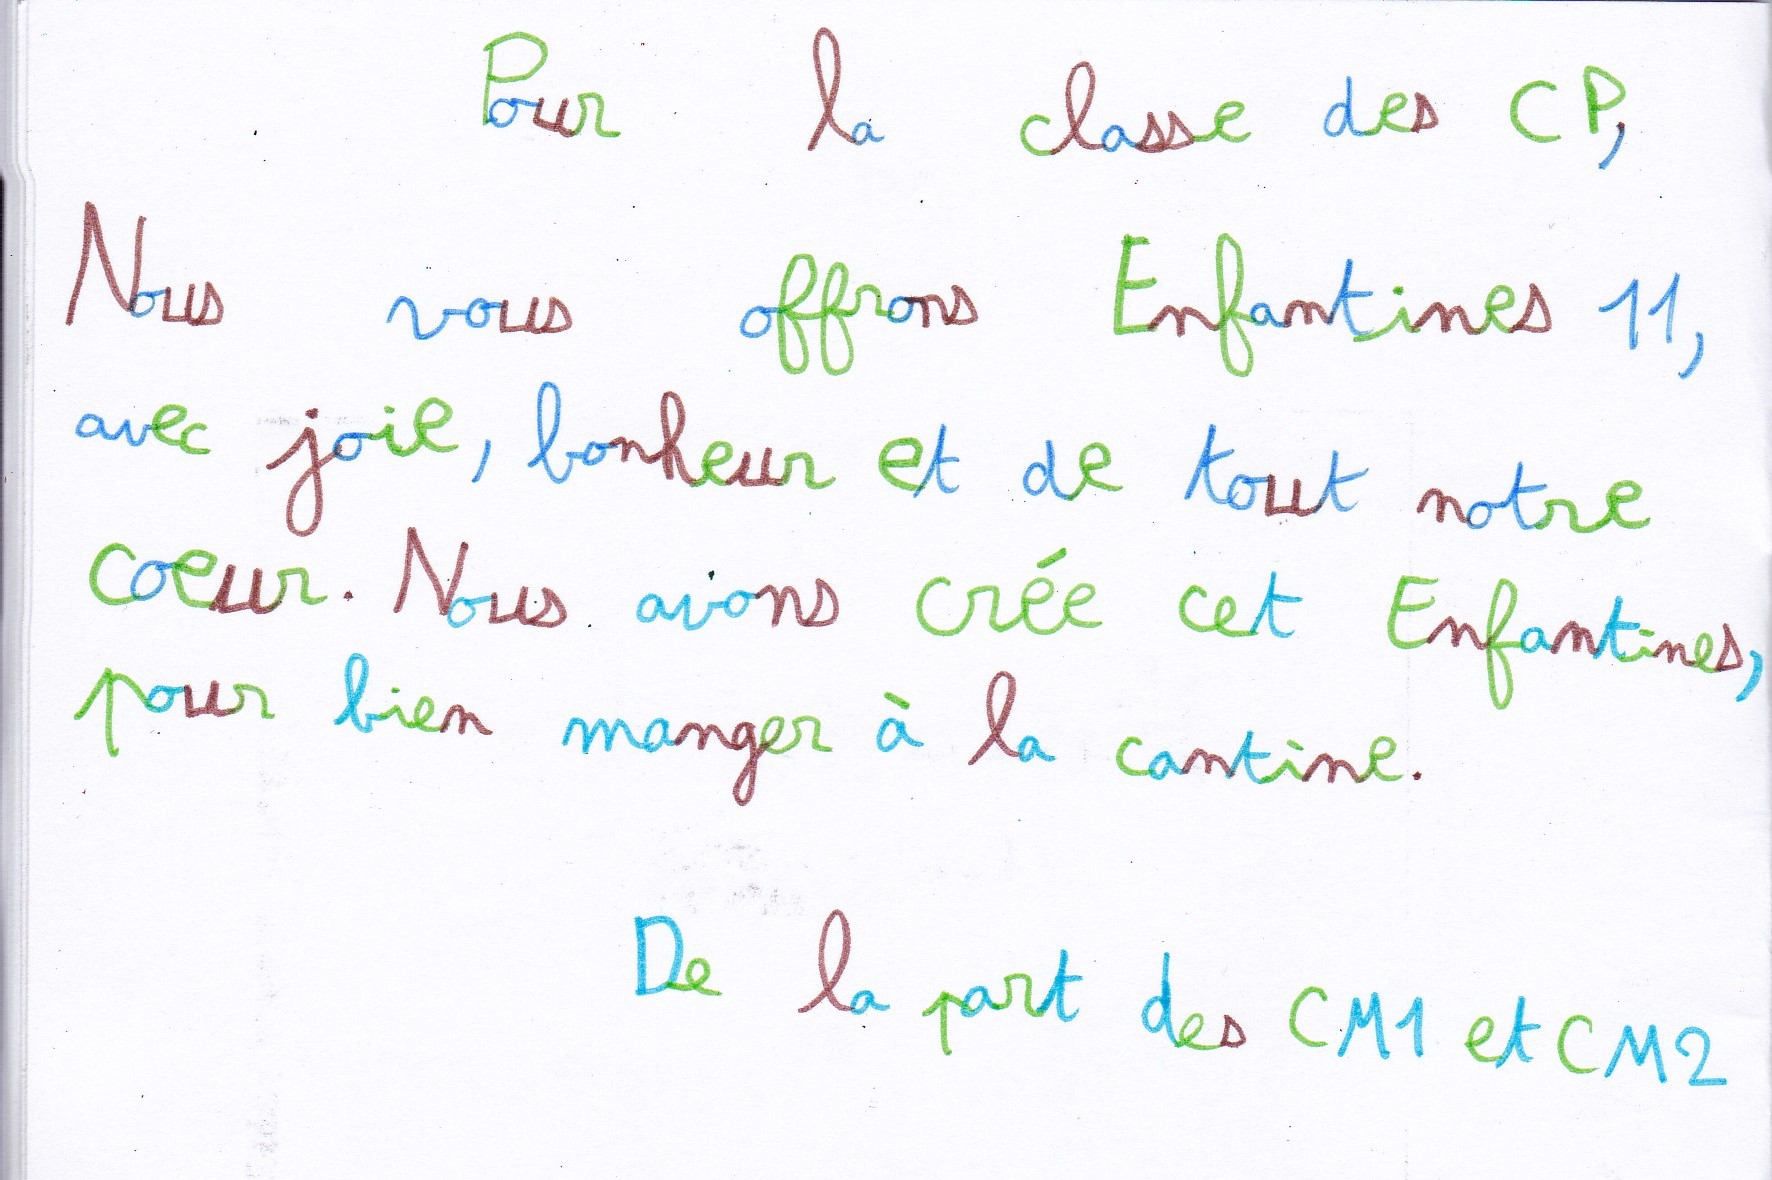 Pour la classe des CP,
Nous vous offrons Enfantines 11,
avec joie, bonheur et de tout notre
coeur. Nous avons crée cet Enfantines,
pour bien manger à la cantine.
De la part des CM1 et CM2